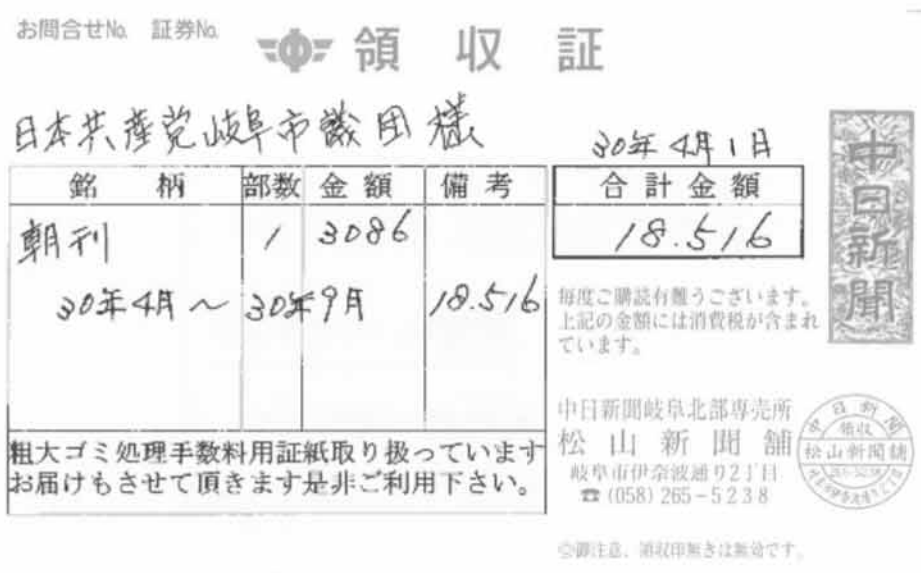 お問合せ№ 証券№
領収証
日本共産党岐阜市議団 様
30年4月1日
銘柄 部数 金額 備考
合計金額
朝刊 1 3086
18.516
30年4月~30年9月 18.516
中日新聞
毎度ご購読有難うございます。
上記の金額には消費税が含まれ
ています。
粗大ゴミ処理手数料用証紙取り扱っています
お届けもさせて頂きます是非ご利用下さい。
中日新聞岐阜北部専売所
松山新聞舗
岐阜市伊奈波通り2丁目
☎(058)265-5238
中日新聞
領収
松山新聞舗
◎御注意、領収印無きは無効です。